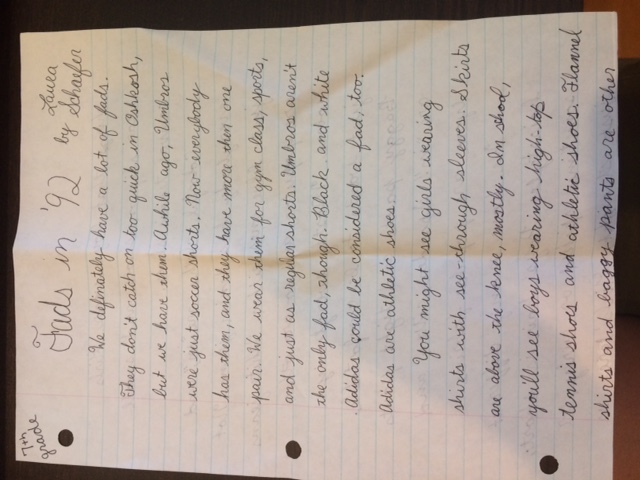 7th grade
Fads in '92
by Laura Schaefer
We definetely have a lot of fads.
They don't catch on too quick in Oshkosh,
but we have them. Awhile ago, Umbros
were just soccer shorts. Now everybody
has them, and they have more then one
pair. We wear them for gym class, sports,
and just as regular shorts. Umbros aren't
the only fad, though. Black and white
Adidas could be considered a fad, too.
Adidas are athletic shoes.
You might see girls wearing
shirts with see-through sleeves. Skirts
are above the knee, mostly. In shool,
you'll see boys wearing high-top
tennis shoes and athletic shoes. Flannel
shirts and baggy pants are other